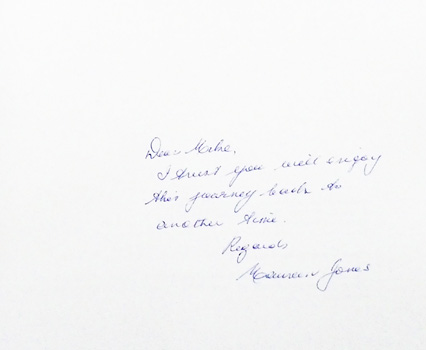 Dear Mike,
I trust you will enjoy
this journey back to
another time.
Regards
Maureen Jones